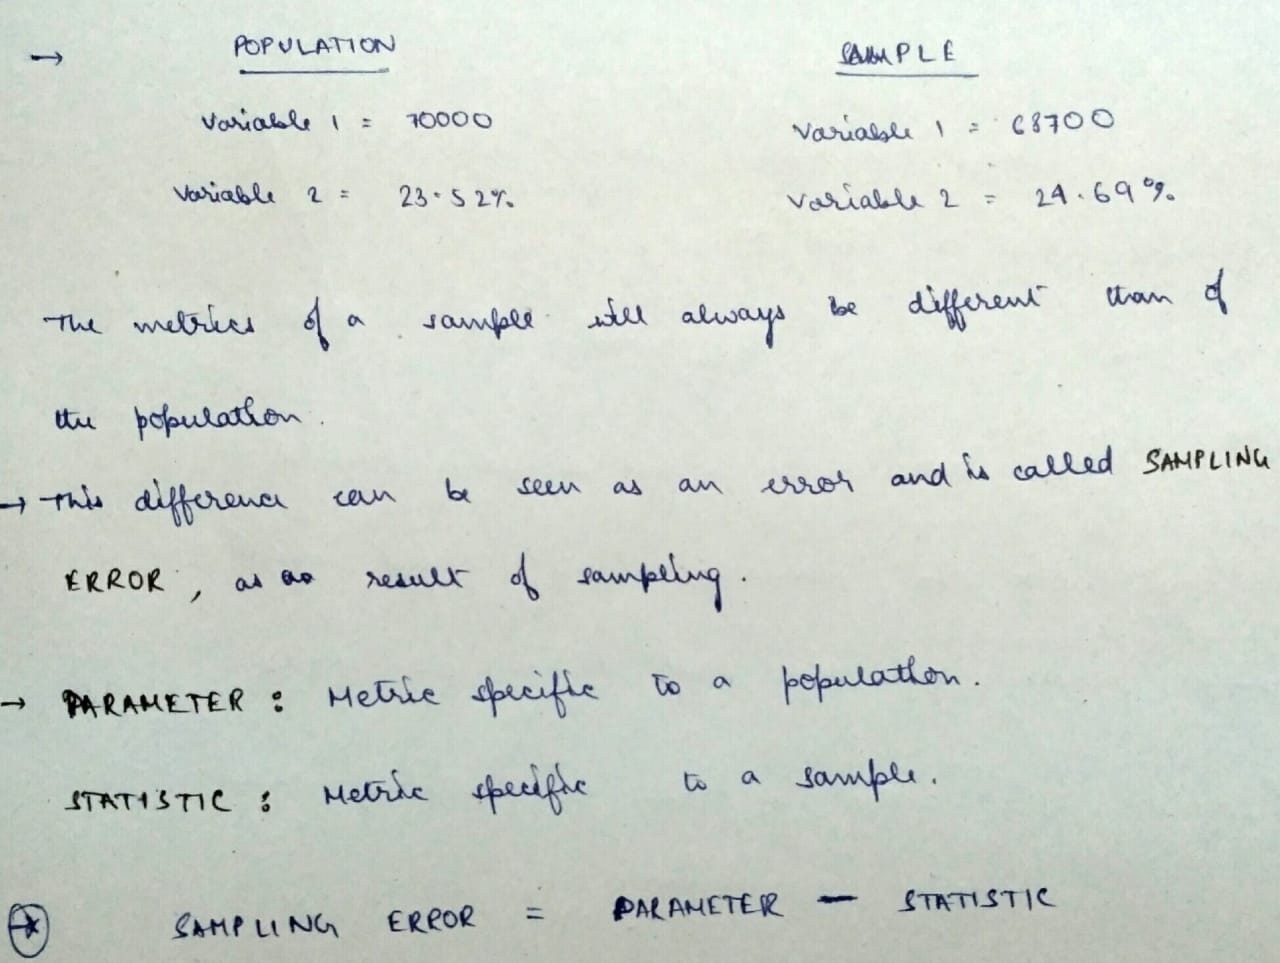 → POPULATION SAMPLE
Variable 1 = 70000 Variable 1 = 68700
Variable 2 = 23.52% Variable 2 = 24.69%
The metrics of a sample will always be different than of
the population.
→ This difference can be seen as an error and is called SAMPLING
ERROR, as a result of sampling.
→ PARAMETER : Metric specific to a population.
STATISTIC : Metric specific to a sample.
SAMPLING ERROR = PARAMETER — STATISTIC